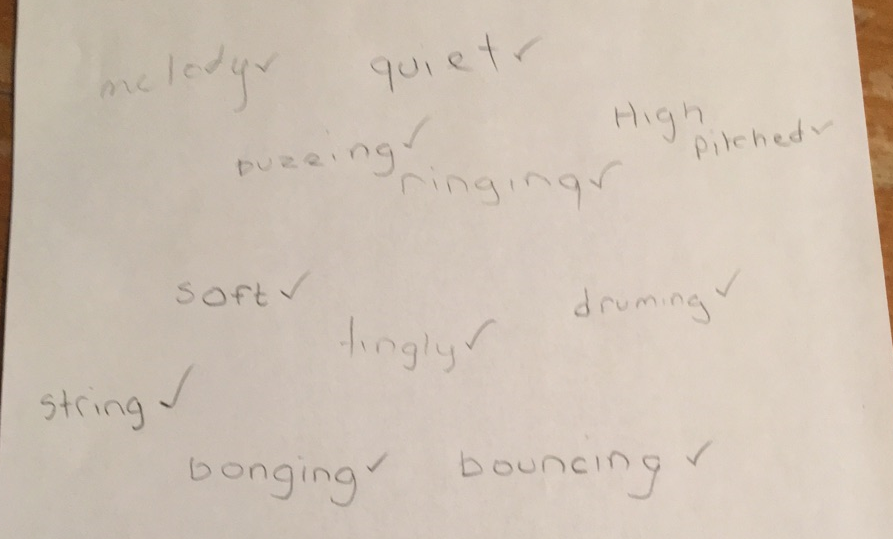 melody✓ quiet✓
High
pitched✓
buzzing✓
ringing✓
soft✓
druming✓
tingly✓
string✓
bonging✓ bouncing✓